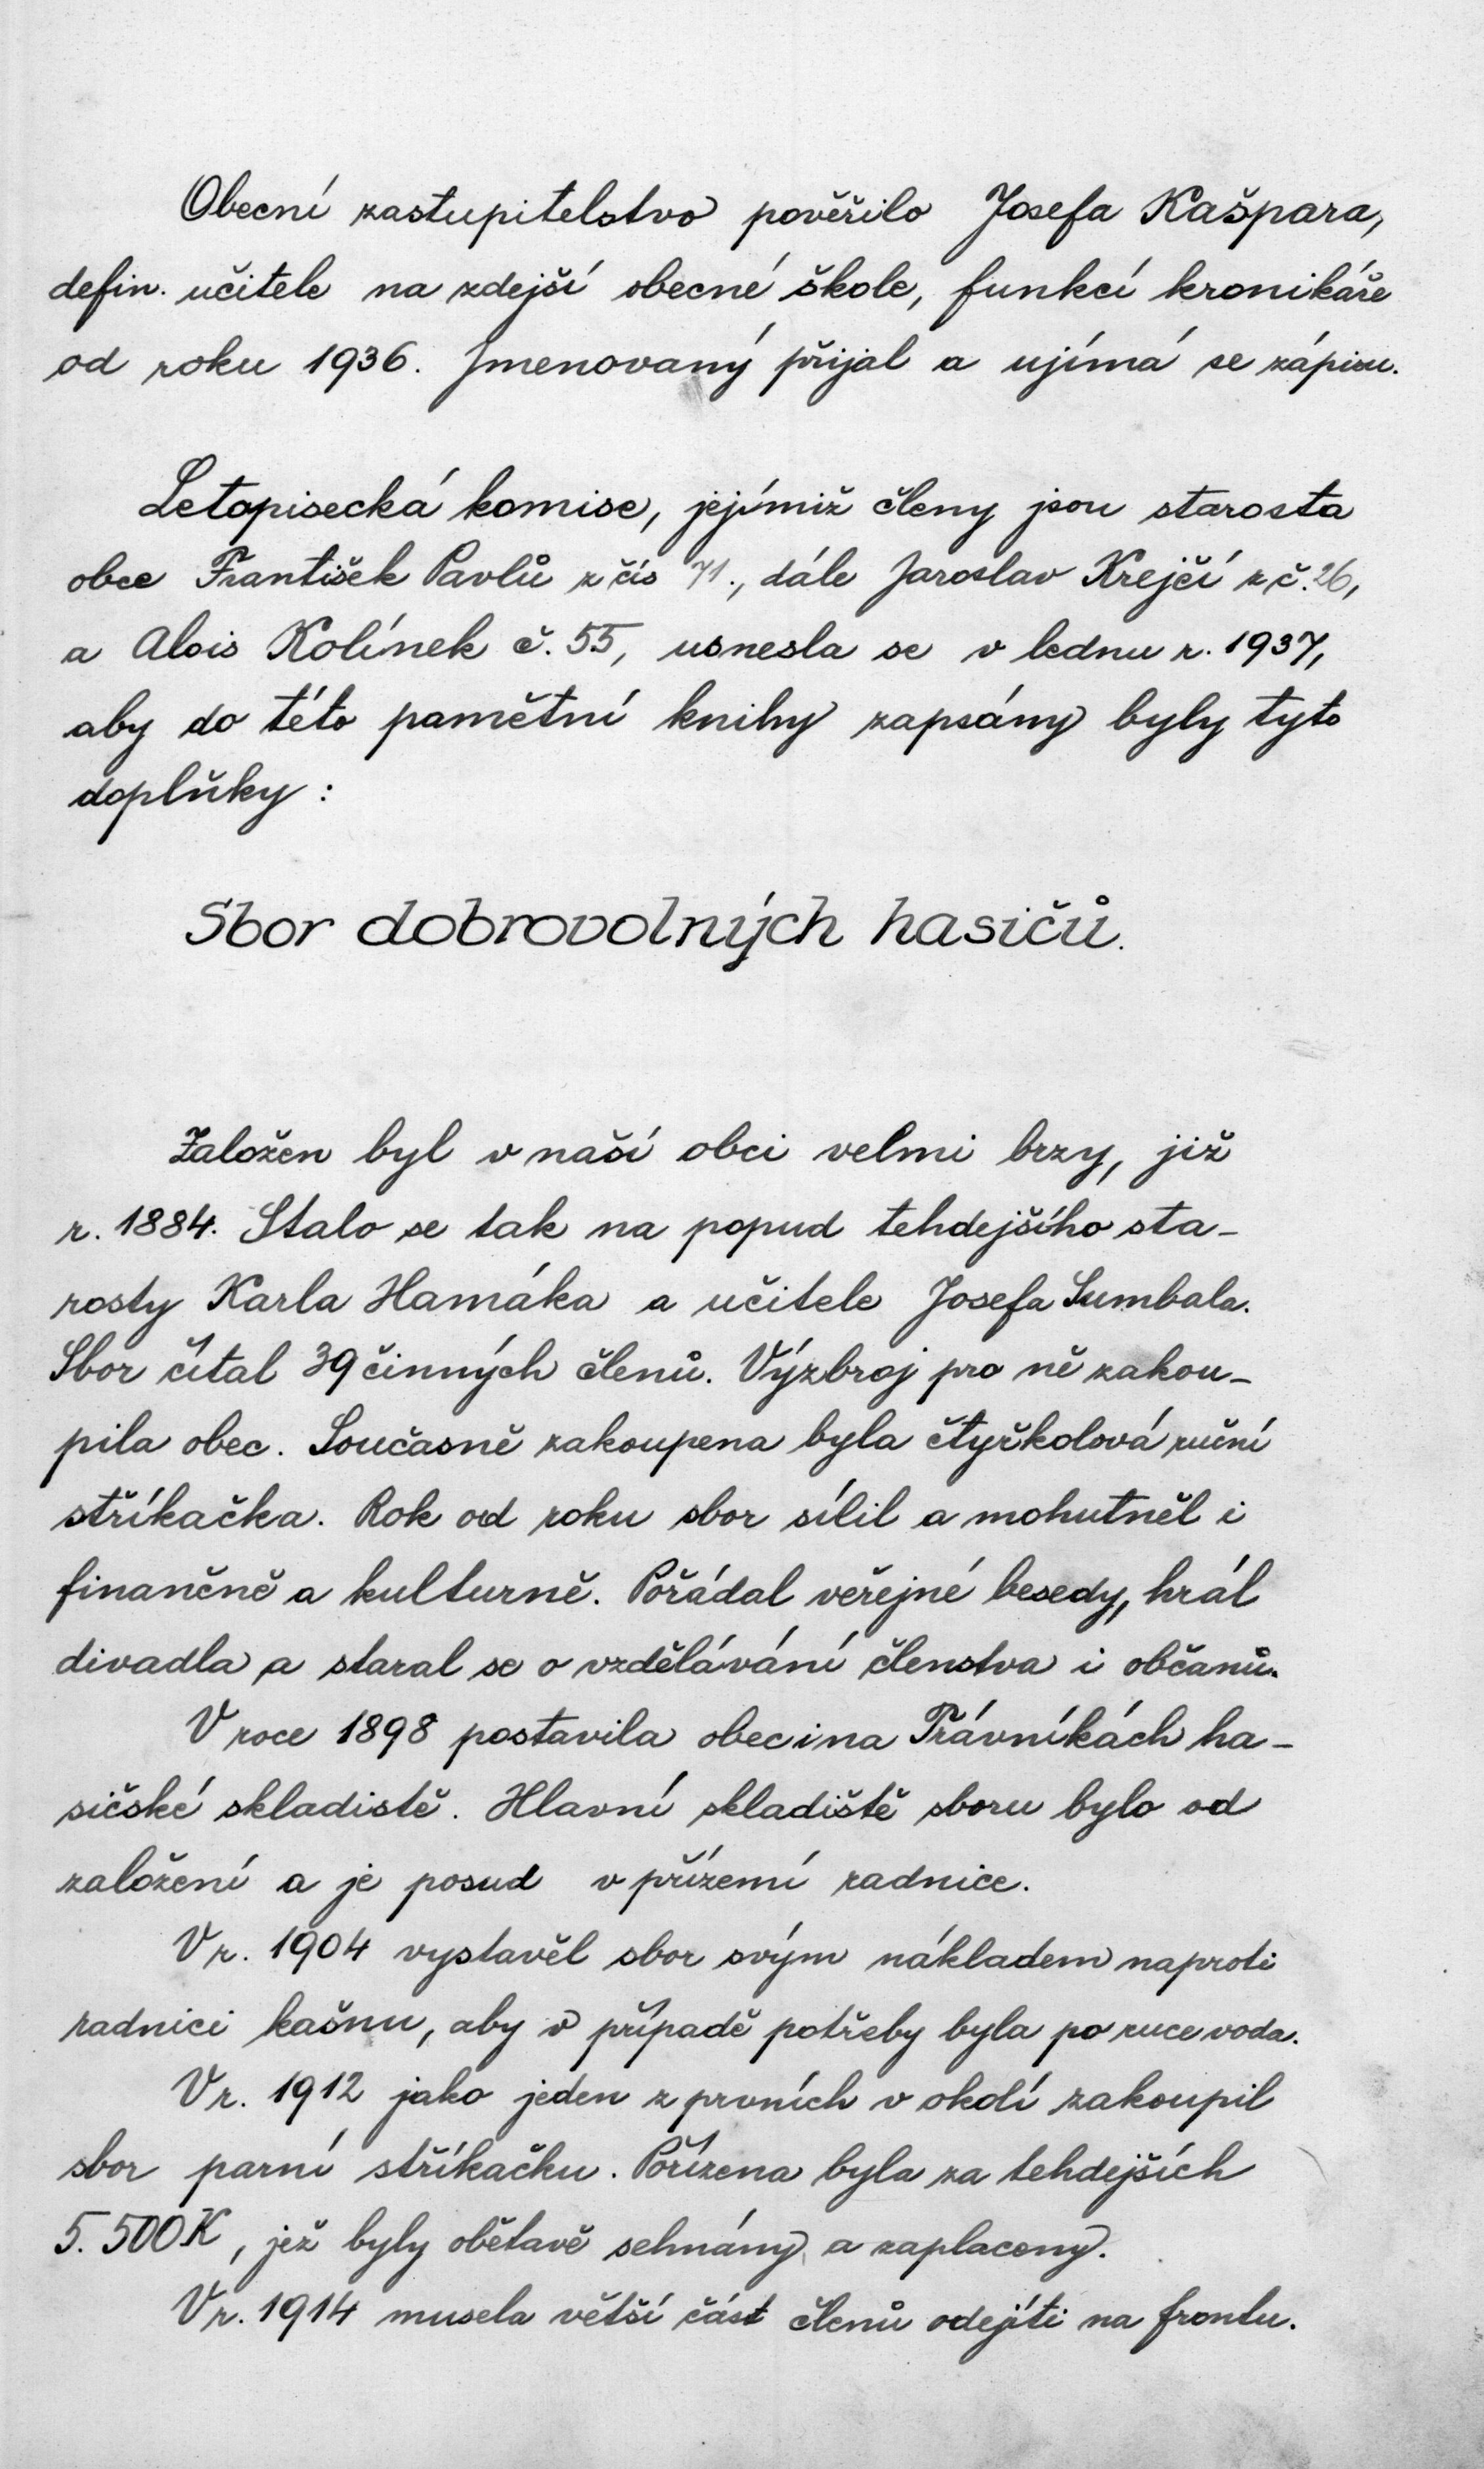 Obecní zastupitelstvo pověřilo Josefa Kašpara,
defin. učitele na zdejší obecné škole, funkcí kronikáře
od roku 1936. Jmenovaný přijal a ujímá se zápisu.
Letopisecká komise, jejímiž členy jsou starosta
obce František Pavlů z čís 71., dále Jaroslav Krejčí z č. 26,
a Alois Kolínek č. 55, usnesla se v lednu r. 1937,
aby do této pamětní knihy zapsány byly tyto
doplňky :
Sbor dobrovolných hasičů.
Založen byl v naší obci velmi brzy, již
r. 1884. Stalo se tak na popud tehdejšího sta-
rosty Karla Hamáka a učitele Josefa Sumbala.
Sbor čítal 39 činných členů. Výzbroj pro ně zakou-
pila obec. Současně zakoupena byla čtyřkolová ruční
stříkačka. Rok od roku sbor sílil a mohutněl i
finančně a kulturně. Pořádal veřejné besedy, hrál
divadla a staral se o vzdělávání členstva i občanů.
V roce 1898 postavila obec i na Trávníkách ha-
sičské skladistě. Hlavní skladiště sboru bylo od
založení a je posud v přízemí radnice.
V r. 1904 vystavěl sbor svým nákladem naproti
radnici kašnu, aby v případě potřeby byla po ruce voda.
V r. 1912 jako jeden z prvních v okolí zakoupil
sbor parní stříkačku. Pořízena byla za tehdejších
5.500 K, jež byly obětavě sehnány a zaplaceny.
V r. 1914 musela větší část členů odejíti na frontu.